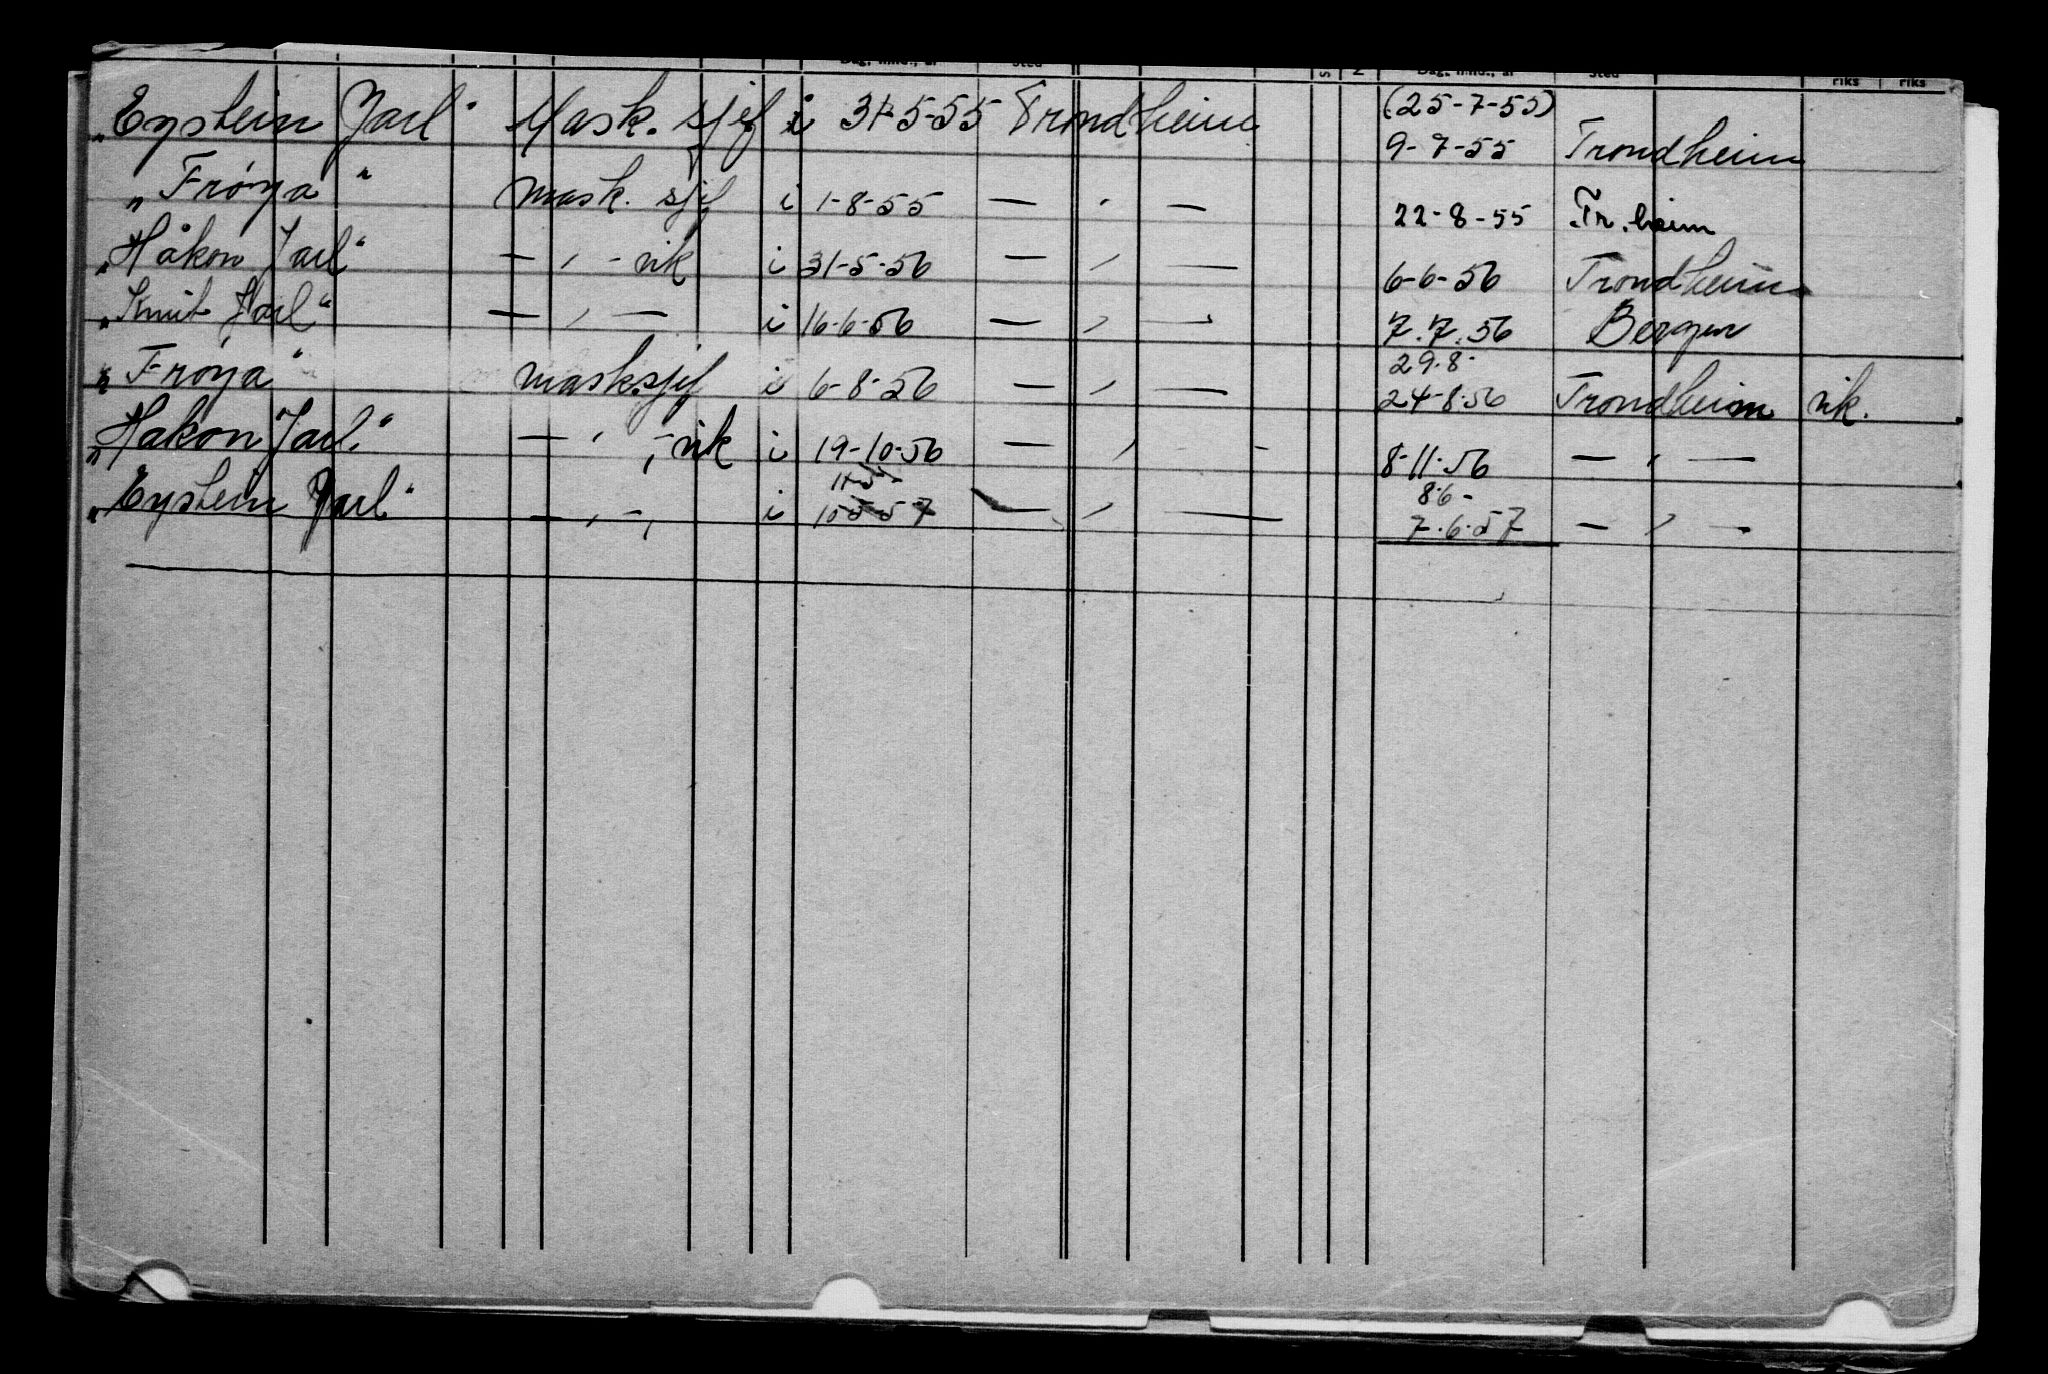 Dag, mnd., år Sted S N Dag, mnd., år Sted riks riks
(25-7-55)
„Eystein Jarl“ Mask. sjef i 31-5-55 Trondheim 9-7-55 Trondheim
„Frøya“ mask. sjef i 1-8-55 — " — 22-8-55 Tr.heim
„Håkon Jarl“ — " — vik i 31-5-56 — " — 6-6-56 Trondheim
„Knut Jarl“ — " — i 16-6-56 — " — 7.7.56 Bergen
29.8-
„Frøya“ masksjef i 6-8-56 — " — 24-8-56 Trondheim vik.
„Håkon Jarl“ — " — vik i 19-10-56 — " — 8-11-56 — " —
8.6-
„Eystein Jarl“ — " — i 10-5-57 — " — 7.6.57 — " —